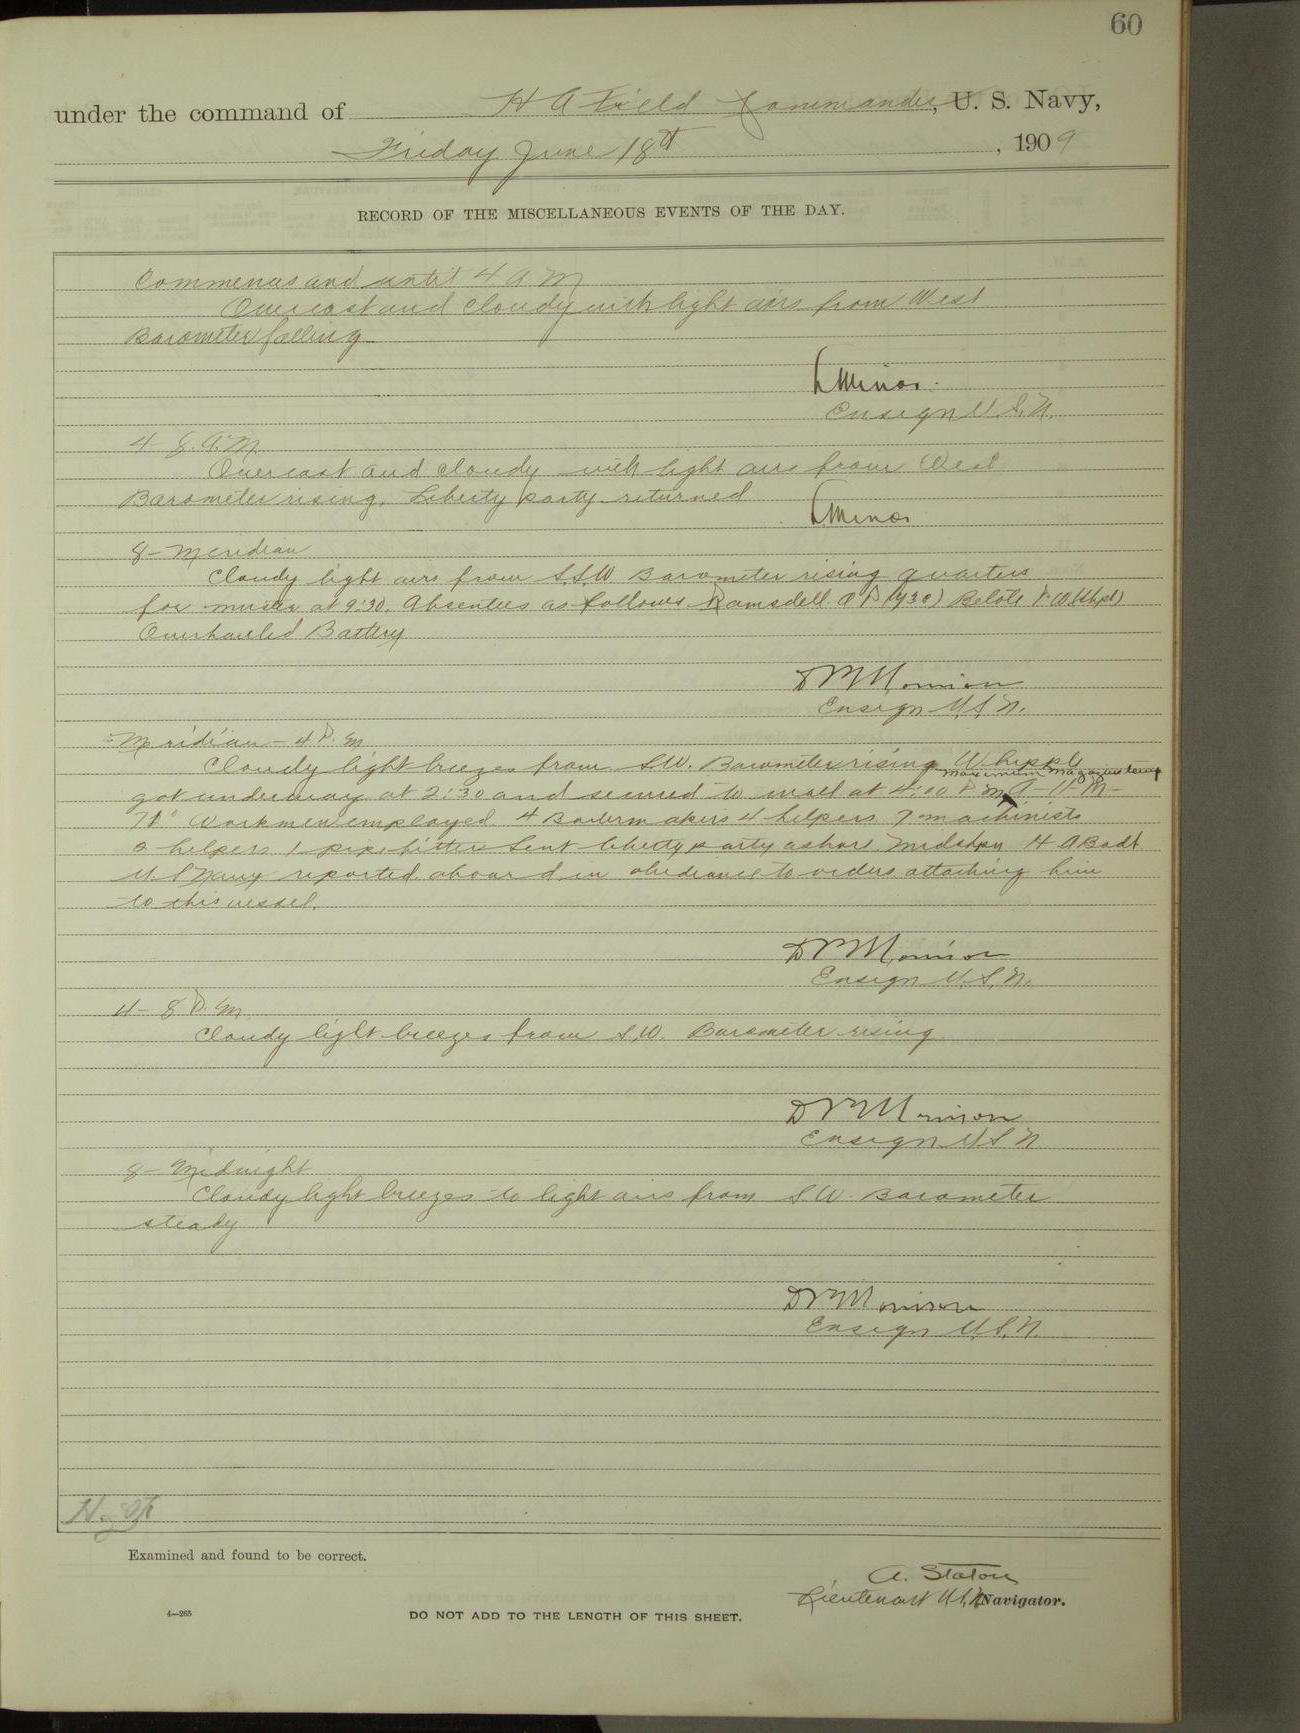 60
under the command of H A Field Commander, U. S. Navy,
Friday June 18th, 1909
RECORD OF THE MISCELLANEOUS EVENTS OF THE DAY.
Commences and until 4 A M
Overcast and cloudy with light airs from West
Barometer falling
L Minor.
Ensign U.S.N.
4-8 A.M.
Overcast and cloudy with light airs from West
Barometer rising. Liberty party returned
L Minor
8- Meridian
Cloudy light airs from S.S.W. Barometer rising quarters
for muster at 9:30. Absentees as follows Ramsdell
Overhauled Battery
Ensign U.S.N.
Meridian - 4 P.M
Cloudy light breezes from S.W. Barometer rising Whipple
maximum magazine temp
got underway at 2:30 and secured to wall at 4:00 P.M.
Workmen employed 4 Boilermakers 4 helpers 7 machinists
helpers 1 pipefitter Sent liberty party ashore Midshpn H A
U S Navy reported aboard in obedience to orders attaching him
to this vessel.
Ensign U.S.N.
4- 8 P.M
Cloudy light breezes from S.W. Barometer rising
Ensign U S N
8- Midnight
Cloudy light breezes to light airs from S.W. Barometer
steady
Ensign U.S.N.
Examined and found to be correct.
A. Staton
Lieutenant U.S.N. Navigator.
4—265
DO NOT ADD TO THE LENGTH OF THIS SHEET.